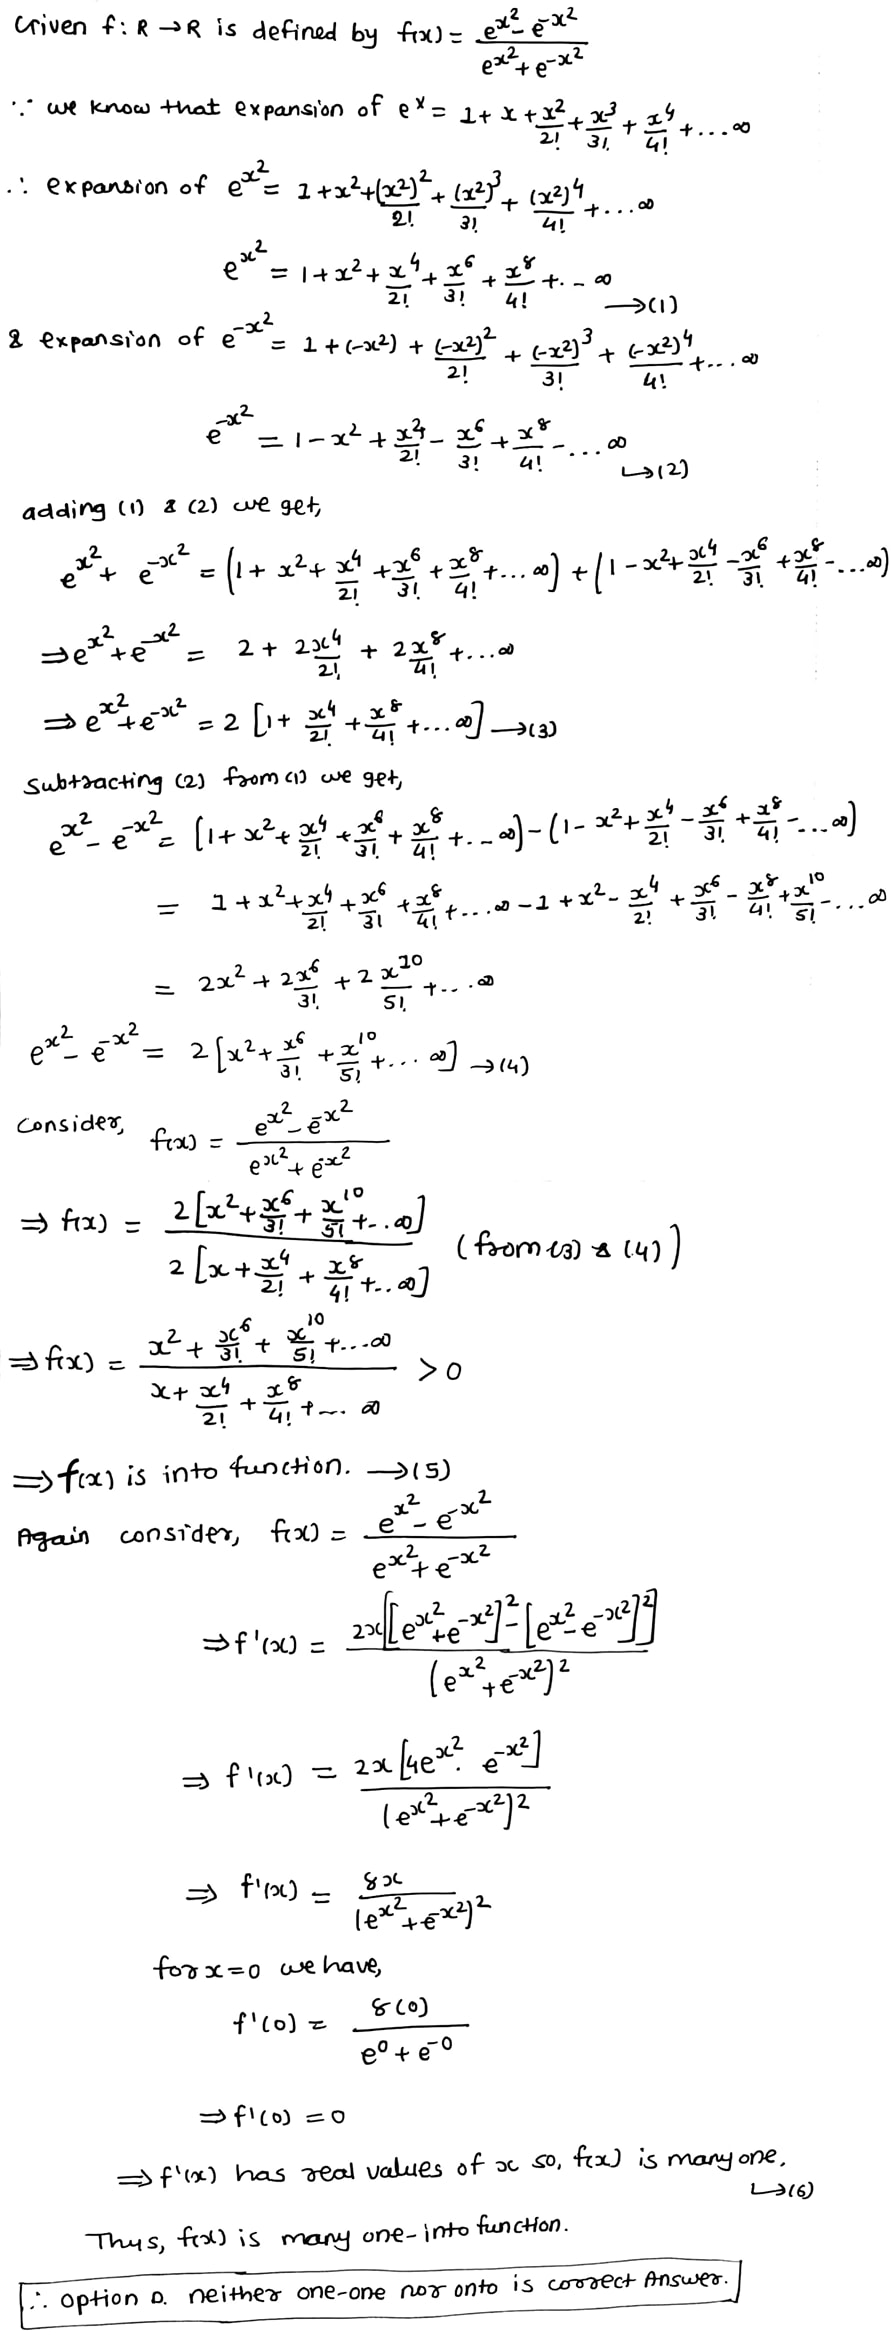 Given f: R → R is defined by f(x) = (e^{x^2} - e^{-x^2})/(e^{x^2} + e^{-x^2})
∵ we know that expansion of e^x = 1 + x + x^2/2! + x^3/3! + x^4/4! + ... ∞
∴ expansion of e^{x^2} = 1 + x^2 + (x^2)^2/2! + (x^2)^3/3! + (x^2)^4/4! + ... ∞
e^{x^2} = 1 + x^2 + x^4/2! + x^6/3! + x^8/4! + .. ∞ → (1)
& expansion of e^{-x^2} = 1 + (-x^2) + (-x^2)^2/2! + (-x^2)^3/3! + (-x^2)^4/4! + ... ∞
e^{-x^2} = 1 - x^2 + x^4/2! - x^6/3! + x^8/4! - ... ∞ ↳ (2)
adding (1) & (2) we get,
e^{x^2} + e^{-x^2} = (1 + x^2 + x^4/2! + x^6/3! + x^8/4! + ... ∞) + (1 - x^2 + x^4/2! - x^6/3! + x^8/4! - ... ∞)
⇒ e^{x^2} + e^{-x^2} = 2 + 2x^4/2! + 2x^8/4! + ... ∞
⇒ e^{x^2} + e^{-x^2} = 2 [1 + x^4/2! + x^8/4! + ... ∞] → (3)
Subtracting (2) from (1) we get,
e^{x^2} - e^{-x^2} = [1 + x^2 + x^4/2! + x^6/3! + x^8/4! + ... ∞) - (1 - x^2 + x^4/2! - x^6/3! + x^8/4! - ... ∞)
= 1 + x^2 + x^4/2! + x^6/3! + x^8/4! + ... ∞ - 1 + x^2 - x^4/2! + x^6/3! - x^8/4! + x^10/5! - ... ∞
= 2x^2 + 2x^6/3! + 2x^10/5! + ... ∞
e^{x^2} - e^{-x^2} = 2 [x^2 + x^6/3! + x^10/5! + ... ∞] → (4)
Consider, f(x) = (e^{x^2} - e^{-x^2})/(e^{x^2} + e^{-x^2})
⇒ f(x) = 2[x^2 + x^6/3! + x^10/5! + .. ∞] / 2[x + x^4/2! + x^8/4! + .. ∞] (from (3) & (4))
⇒ f(x) = (x^2 + x^6/3! + x^10/5! + ... ∞)/(x + x^4/2! + x^8/4! + ... ∞) > 0
⇒ f(x) is into function. → (5)
Again consider, f(x) = (e^{x^2} - e^{-x^2})/(e^{x^2} + e^{-x^2})
⇒ f'(x) = 2x[[e^{x^2} + e^{-x^2}]^2 - [e^{x^2} - e^{-x^2}]^2]/(e^{x^2} + e^{-x^2})^2
⇒ f'(x) = 2x[4e^{x^2} . e^{-x^2}]/(e^{x^2} + e^{-x^2})^2
⇒ f'(x) = 8x/(e^{x^2} + e^{-x^2})^2
for x = 0 we have,
f'(0) = 8(0)/(e^0 + e^{-0})
⇒ f'(0) = 0
⇒ f'(x) has real values of x so, f(x) is many one. ↳ (6)
Thus, f(x) is many one-into function.
∴ option D. neither one-one nor onto is correct Answer.